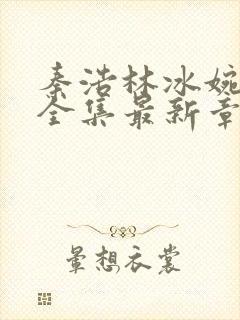 秦浩林冰婉
全集最新章
云想衣裳